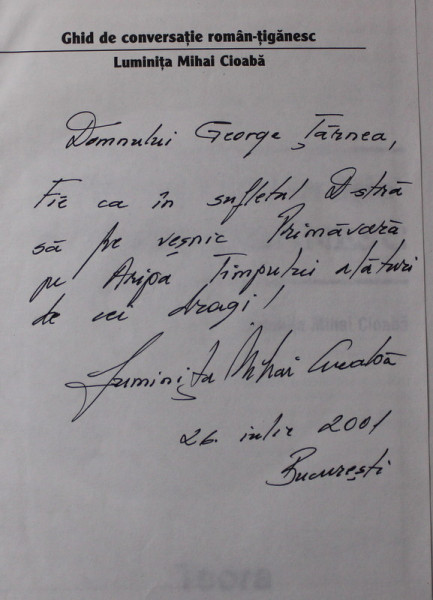 Ghid de conversație român-țigănesc
Luminița Mihai Cioabă
Domnului George Țărnea,
Fie ca în sufletul D-stră
să fie veșnic Primăvară
pe Aripa Timpului alături
de cei dragi!
Luminița Mihai Cioabă
26. iulie 2001
București
Mihai Cioabă
Teora